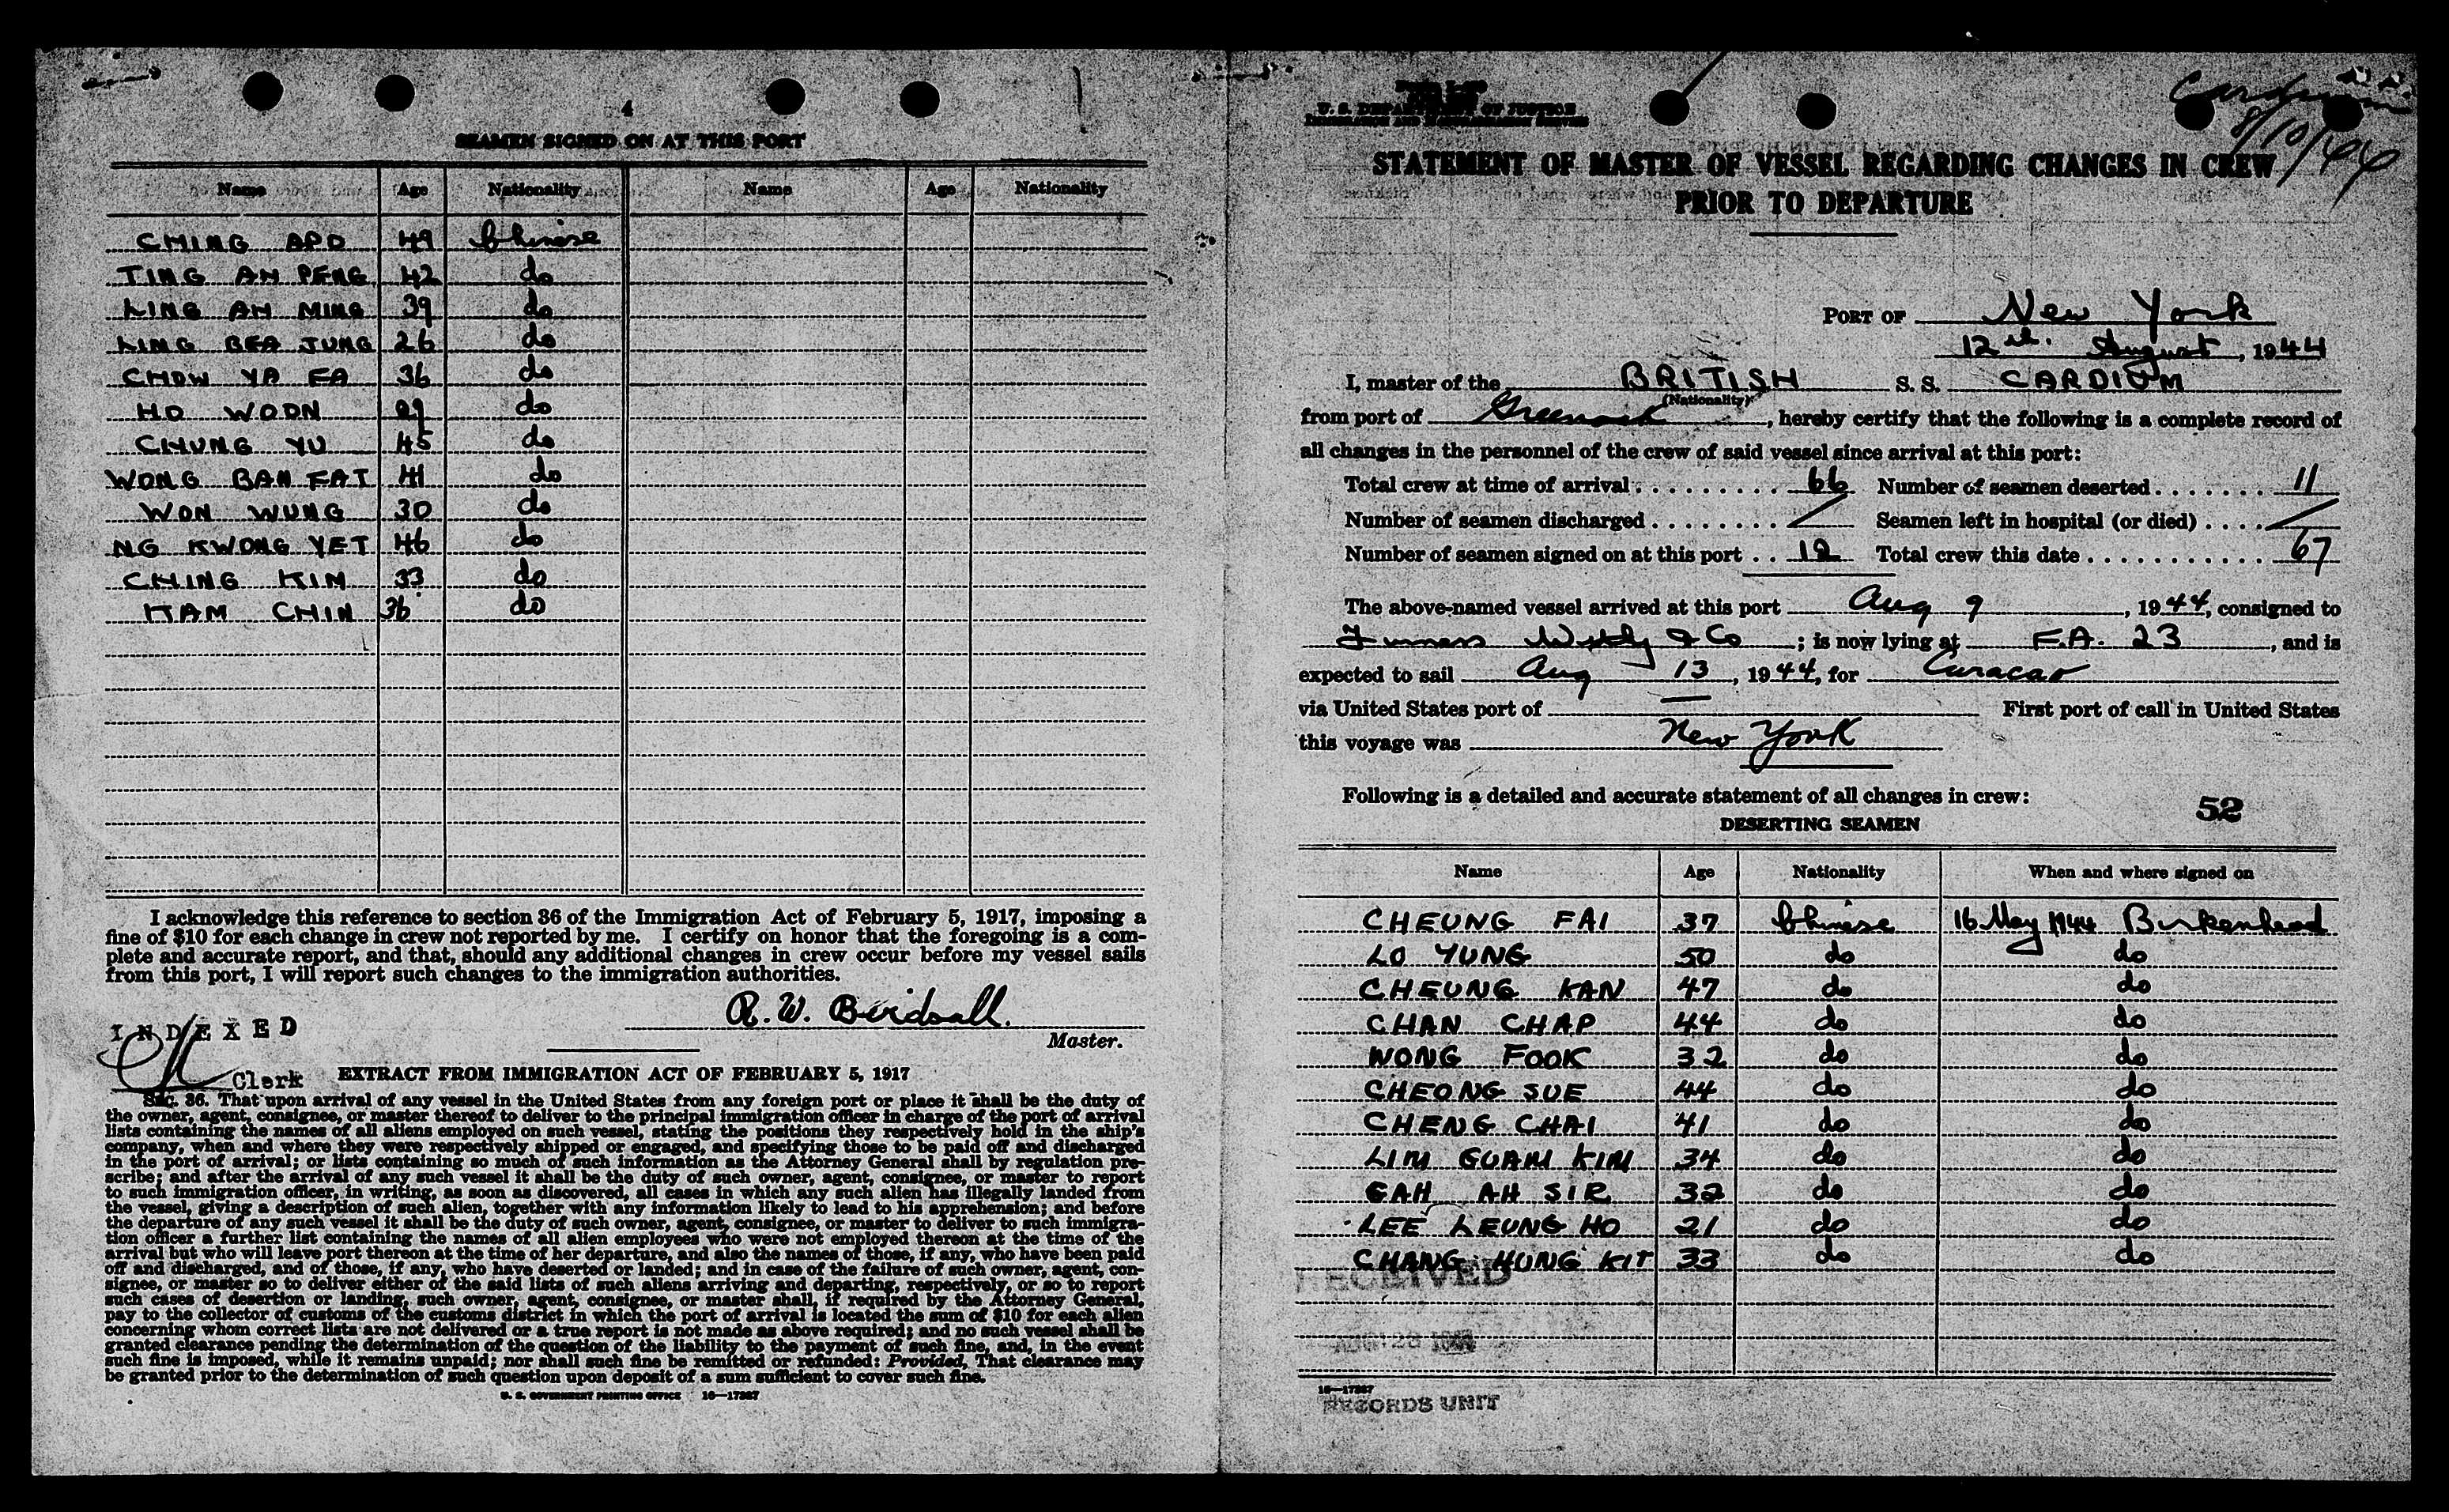 4
SEAMEN SIGNED ON AT THIS PORT
Name Age Nationality Name Age Nationality
CHING APO 49 Chinese
TING AH PENG 42 do
LING AH MING 39 do
LING BEA JUNG 26 do
CHOW YA FA 36 do
HO WOON 29 do
CHUNG YU 45 do
WONG BAN FAT 41 do
WON WUNG 30 do
NG KWONG YET 46 do
CHING KIM 33 do
HAM CHIN 36 do
I acknowledge this reference to section 36 of the Immigration Act of February 5, 1917, imposing a
fine of $10 for each change in crew not reported by me. I certify on honor that the foregoing is a com-
plete and accurate report, and that, should any additional changes in crew occur before my vessel sails
from this port, I will report such changes to the immigration authorities.
R. W. Birdsall.
Master.
INDEXED
Clerk
EXTRACT FROM IMMIGRATION ACT OF FEBRUARY 5, 1917
SEC. 36. That upon arrival of any vessel in the United States from any foreign port or place it shall be the duty of
the owner, agent, consignee, or master thereof to deliver to the principal immigration officer in charge of the port of arrival
lists containing the names of all aliens employed on such vessel, stating the positions they respectively hold in the ship's
company, when and where they were respectively shipped or engaged, and specifying those to be paid off and discharged
in the port of arrival; or lists containing so much of such information as the Attorney General shall by regulation pre-
scribe; and after the arrival of any such vessel it shall be the duty of such owner, agent, consignee, or master to report
to such immigration officer, in writing, as soon as discovered, all cases in which any such alien has illegally landed from
the vessel, giving a description of such alien, together with any information likely to lead to his apprehension; and before
the departure of any such vessel it shall be the duty of such owner, agent, consignee, or master to deliver to such immigra-
tion officer a further list containing the names of all alien employees who were not employed thereon at the time of the
arrival but who will leave port thereon at the time of her departure, and also the names of those, if any, who have been paid
off and discharged, and of those, if any, who have deserted or landed; and in case of the failure of such owner, agent, con-
signee, or master so to deliver either of the said lists of such aliens arriving and departing, respectively, or so to report
such cases of desertion or landing, such owner, agent, consignee, or master shall, if required by the Attorney General,
pay to the collector of customs of the customs district in which the port of arrival is located the sum of $10 for each alien
concerning whom correct lists are not delivered or a true report is not made as above required; and no such vessel shall be
granted clearance pending the determination of the question of the liability to the payment of such fine, and, in the event
such fine is imposed, while it remains unpaid; nor shall such fine be remitted or refunded: Provided, That clearance may
be granted prior to the determination of such question upon deposit of a sum sufficient to cover such fine.
U. S. GOVERNMENT PRINTING OFFICE 16—17367
U. S. DEPARTMENT OF JUSTICE
IMMIGRATION AND NATURALIZATION SERVICE
8/10/44
STATEMENT OF MASTER OF VESSEL REGARDING CHANGES IN CREW
PRIOR TO DEPARTURE
PORT OF New York
12th. August, 1944
I, master of the BRITISH S. S. CARDIUM
(Nationality)
from port of Greenock, hereby certify that the following is a complete record of
all changes in the personnel of the crew of said vessel since arrival at this port:
Total crew at time of arrival 66 Number of seamen deserted 11
Number of seamen discharged / Seamen left in hospital (or died) /
Number of seamen signed on at this port 12 Total crew this date 67
The above-named vessel arrived at this port Aug 9, 1944, consigned to
Furness Withy & Co; is now lying at F.A. 23, and is
expected to sail Aug 13, 1944, for Curacao
via United States port of — First port of call in United States
this voyage was New York
Following is a detailed and accurate statement of all changes in crew:
52
DESERTING SEAMEN
Name Age Nationality When and where signed on
CHEUNG FAI 37 Chinese 16 May 1944 Birkenhead
LO YUNG 50 do do
CHEUNG KAN 47 do do
CHAN CHAP 44 do do
WONG FOOK 32 do do
CHEONG SUE 44 do do
CHENG CHAI 41 do do
LIM GUAN KIM 34 do do
GAH AH SIR 32 do do
LEE LEUNG HO 21 do do
CHANG HUNG KIT 33 do do
RECEIVED
AUG 28
16—17367
RECORDS UNIT